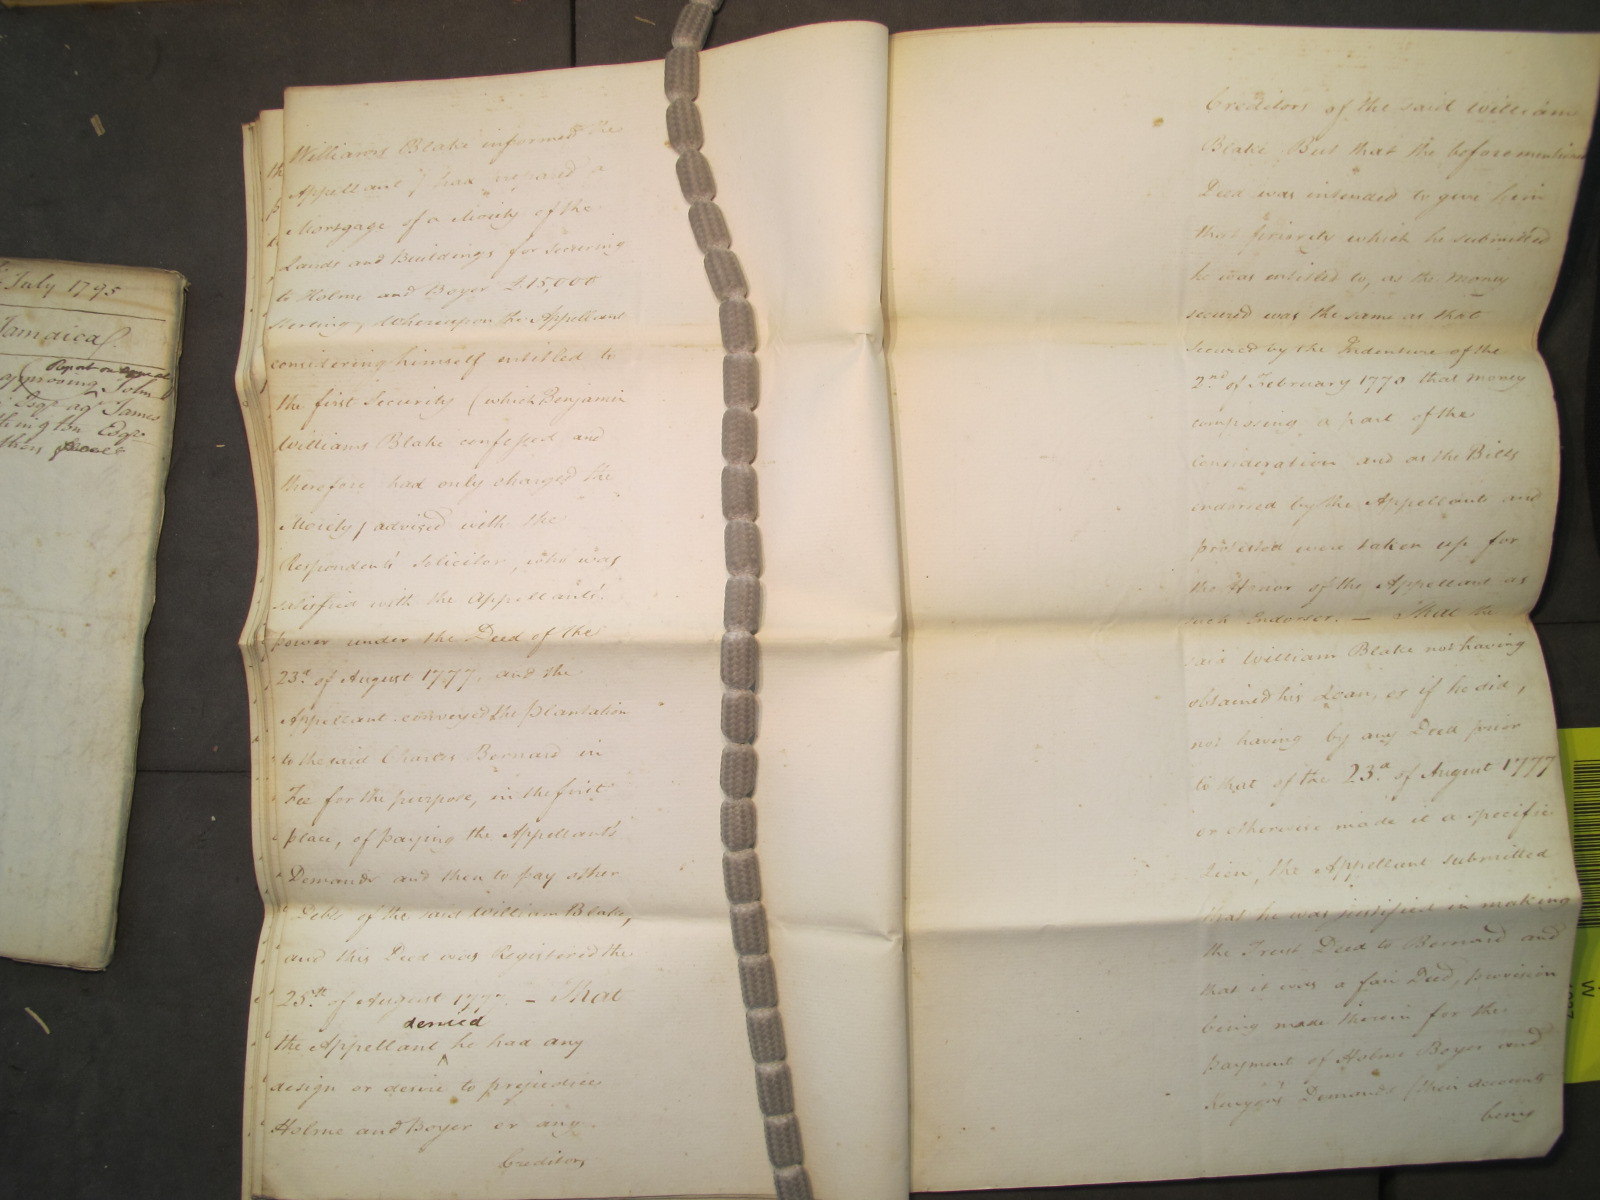 July 1795
Jamaica
Report on appeal
approving John
Esqr agt James
Esqr
others
Williams Blake informed the
Appellant) had prepared a
Mortgage of a Moiety of the
Lands and Buildings for securing
to Holme and Boyer £15,000
Sterling, Whereupon the Appellant
considering himself entitled to
the first Security (which Benjamin
Williams Blake confessed and
therefore had only charged the
Moiety) advised with the
Respondents Solicitor, who was
satisfied with the Appellants
power under the Deed of the
23d of August 1777, and the
Appellant conveyed the plantation
to the said Charles Bernard in
Fee for the purpose, in the first
place, of paying the Appellants
Demands and then to pay other
Debts of the said William Blake,
and this Deed was Registered the
25th of August 1777. – That
denied
the Appellant ^ he had any
design or desire to prejudice
Holme and Boyer or any
Creditors
Creditors of the said William
Blake, But that the beforementioned
Deed was intended to give him
that priority which he submitted
he was entitled to, as the money
secured was the same as that
secured by the Indenture of the
2nd of February 1770 that money
composing a part of the
consideration and as the Bills
endorsed by the Appellant and
protested were taken up for
the Honor of the Appellant as
such Indorser. – That the
said William Blake not having
obtained his Loan, or if he did,
not having by any Deed prior
to that of the 23d of August 1777
or otherwise made it a specific
Lien, the Appellant submitted
that he was justified in making
the Trust Deed to Bernard and
that it was a fair Deed, provision
being made therein for the
payment of Holme Boyer and
Demands (their accounts
being